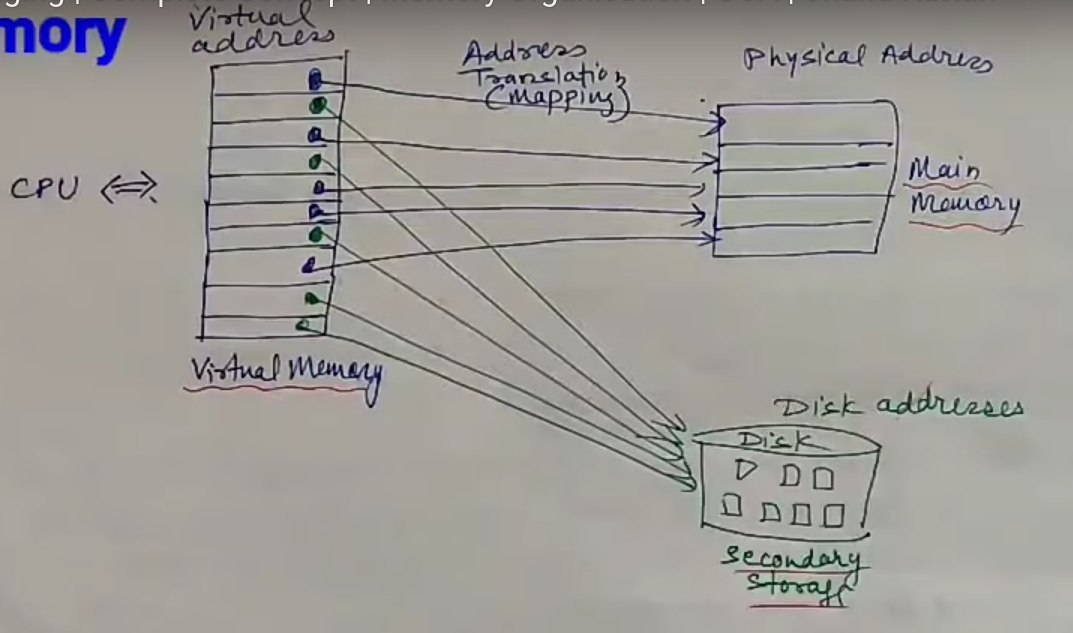 mory
Virtual
address
Address
Translation
(Mapping)
Physical Address
CPU
Main
Memory
Virtual Memory
Disk addresses
Disk
Secondary
Storage